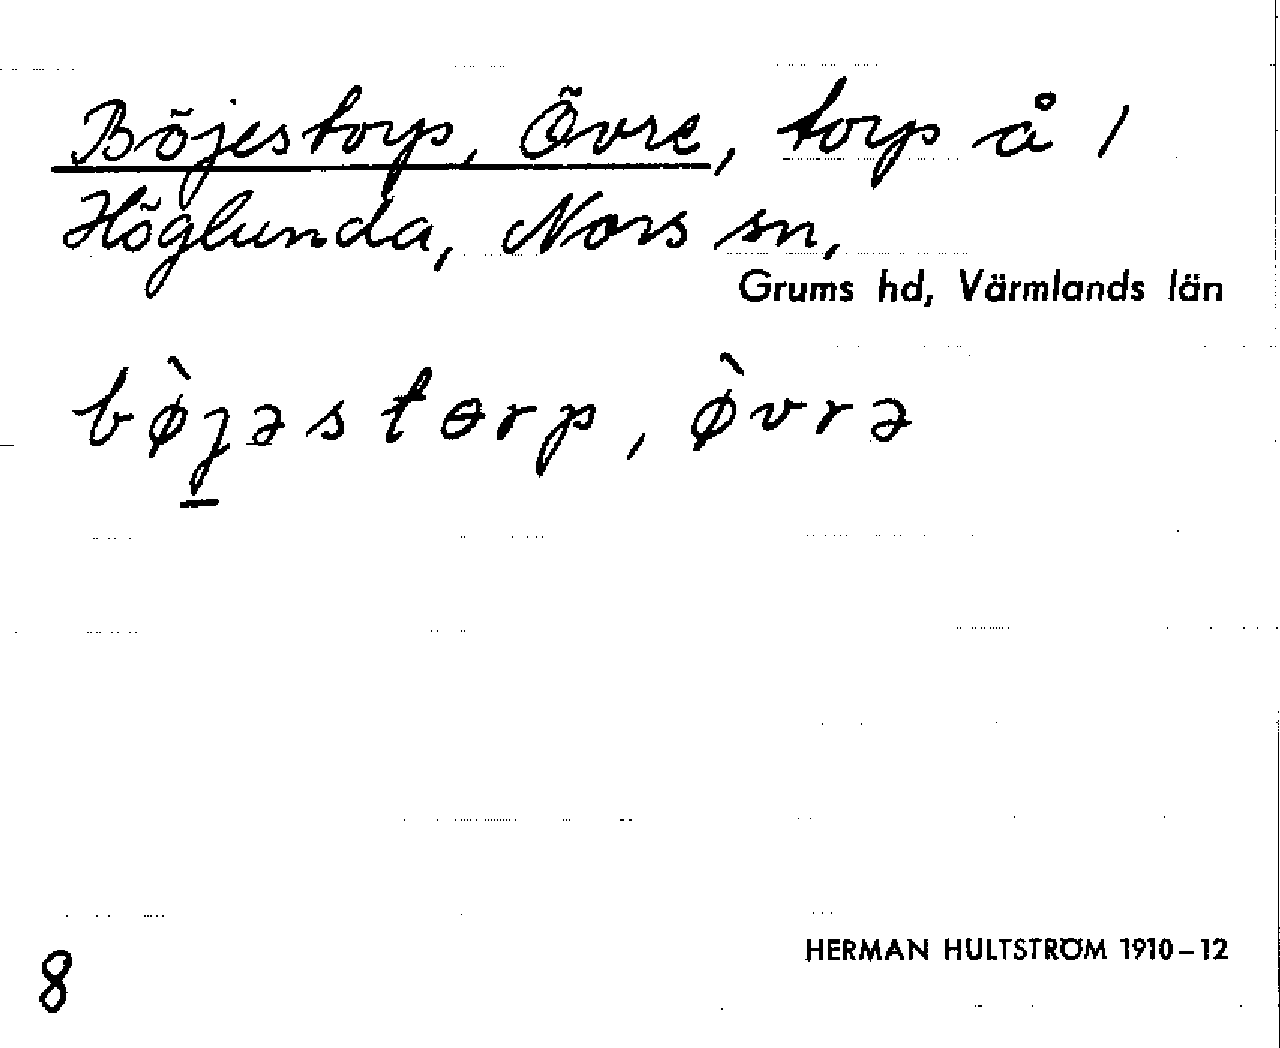 Böjestorp, Övre, torp å 1
Höglunda, Nors sn,
Grums hd, Värmlands län
bø̀jəstɵrp, ø̀vrə
HERMAN HULTSTRÖM 1910–12
8